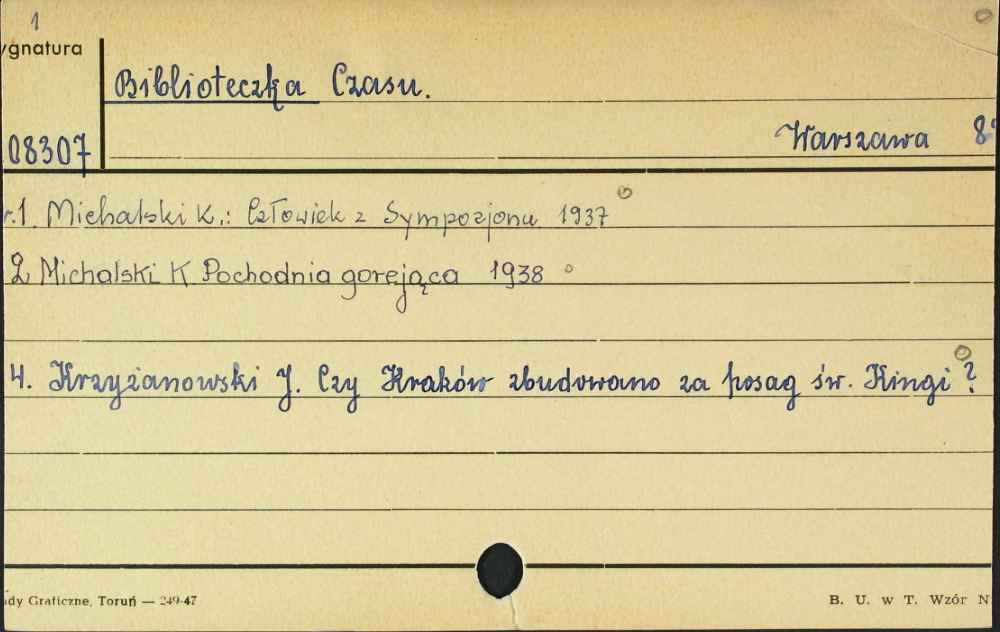 1
ygnatura
Biblioteczka Czasu.
08307
Warszawa 8°
r.1. Michalski K.: Człowiek z Sympozjonu 1937
2 Michalski K Pochodnia gorejąca 1938
4. Krzyżanowski J. Czy Kraków zbudowano za posag św. Kingi?
ady Graficzne, Toruń — 249-47
B. U. w T. Wzór N